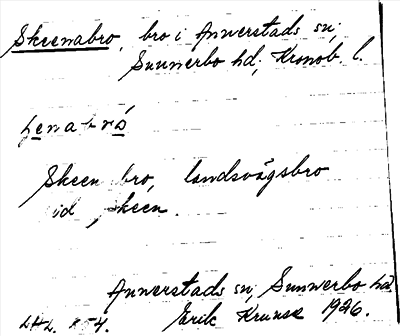 Skeenabro, bro i Annerstads sn,
Sunnerbo hd, Kronob. l.
Skeen bro, landsvägsbro
id skeen.
Annerstads sn, Sunnerbo hd
Erik Kruuse 1926.